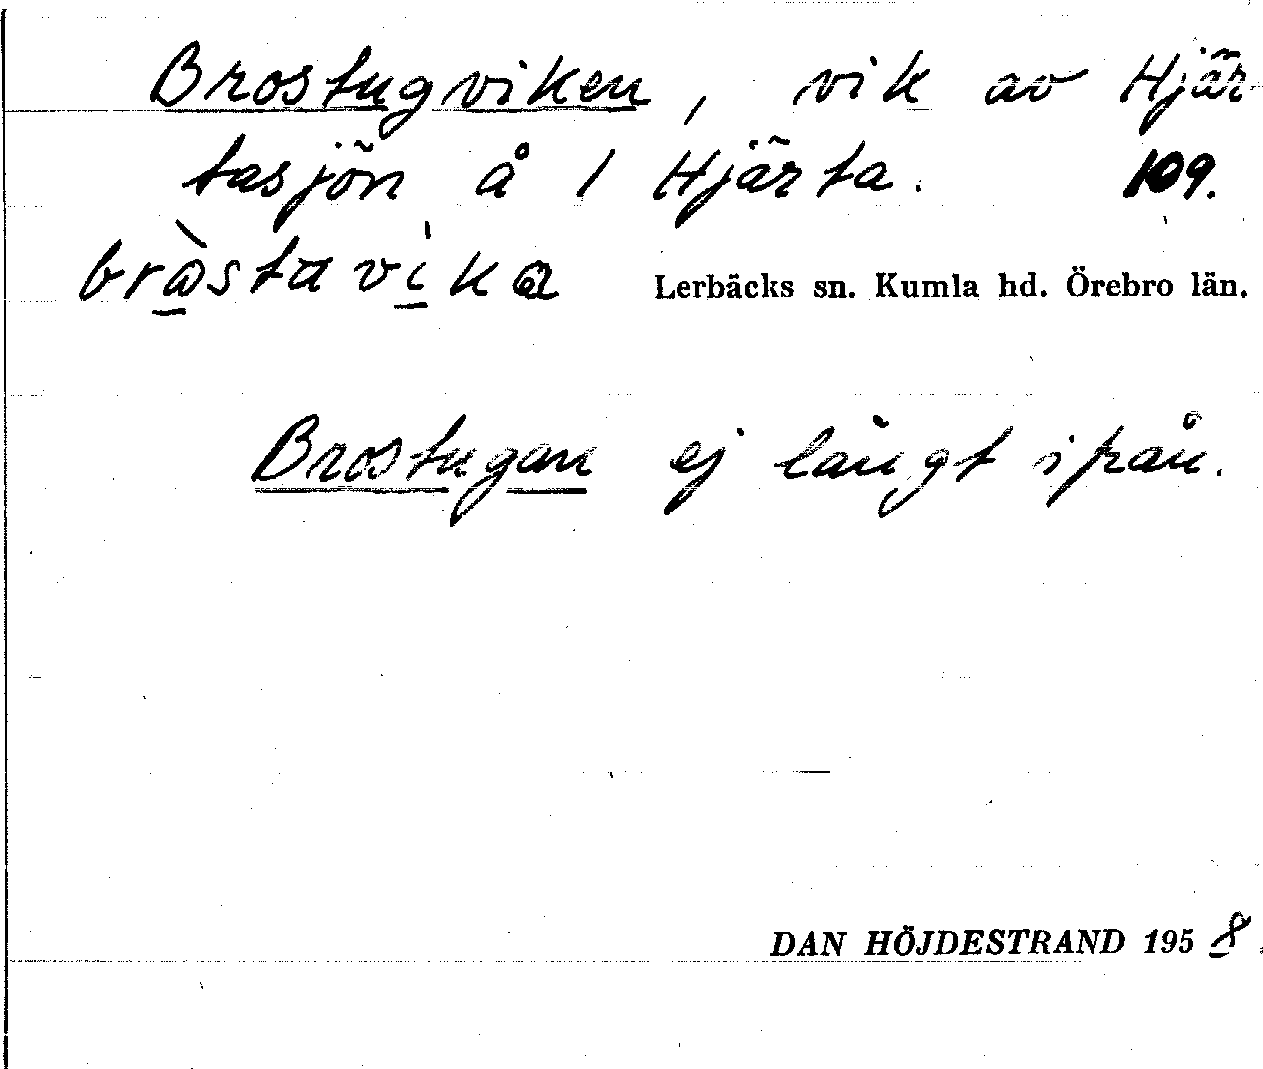 Brostugviken, vik av Hjär-
tasjön å 1 Hjärta. 109.
bråstavika Lerbäcks sn. Kumla hd. Örebro län.
Brostugan ej långt ifrån.
DAN HÖJDESTRAND 1958.